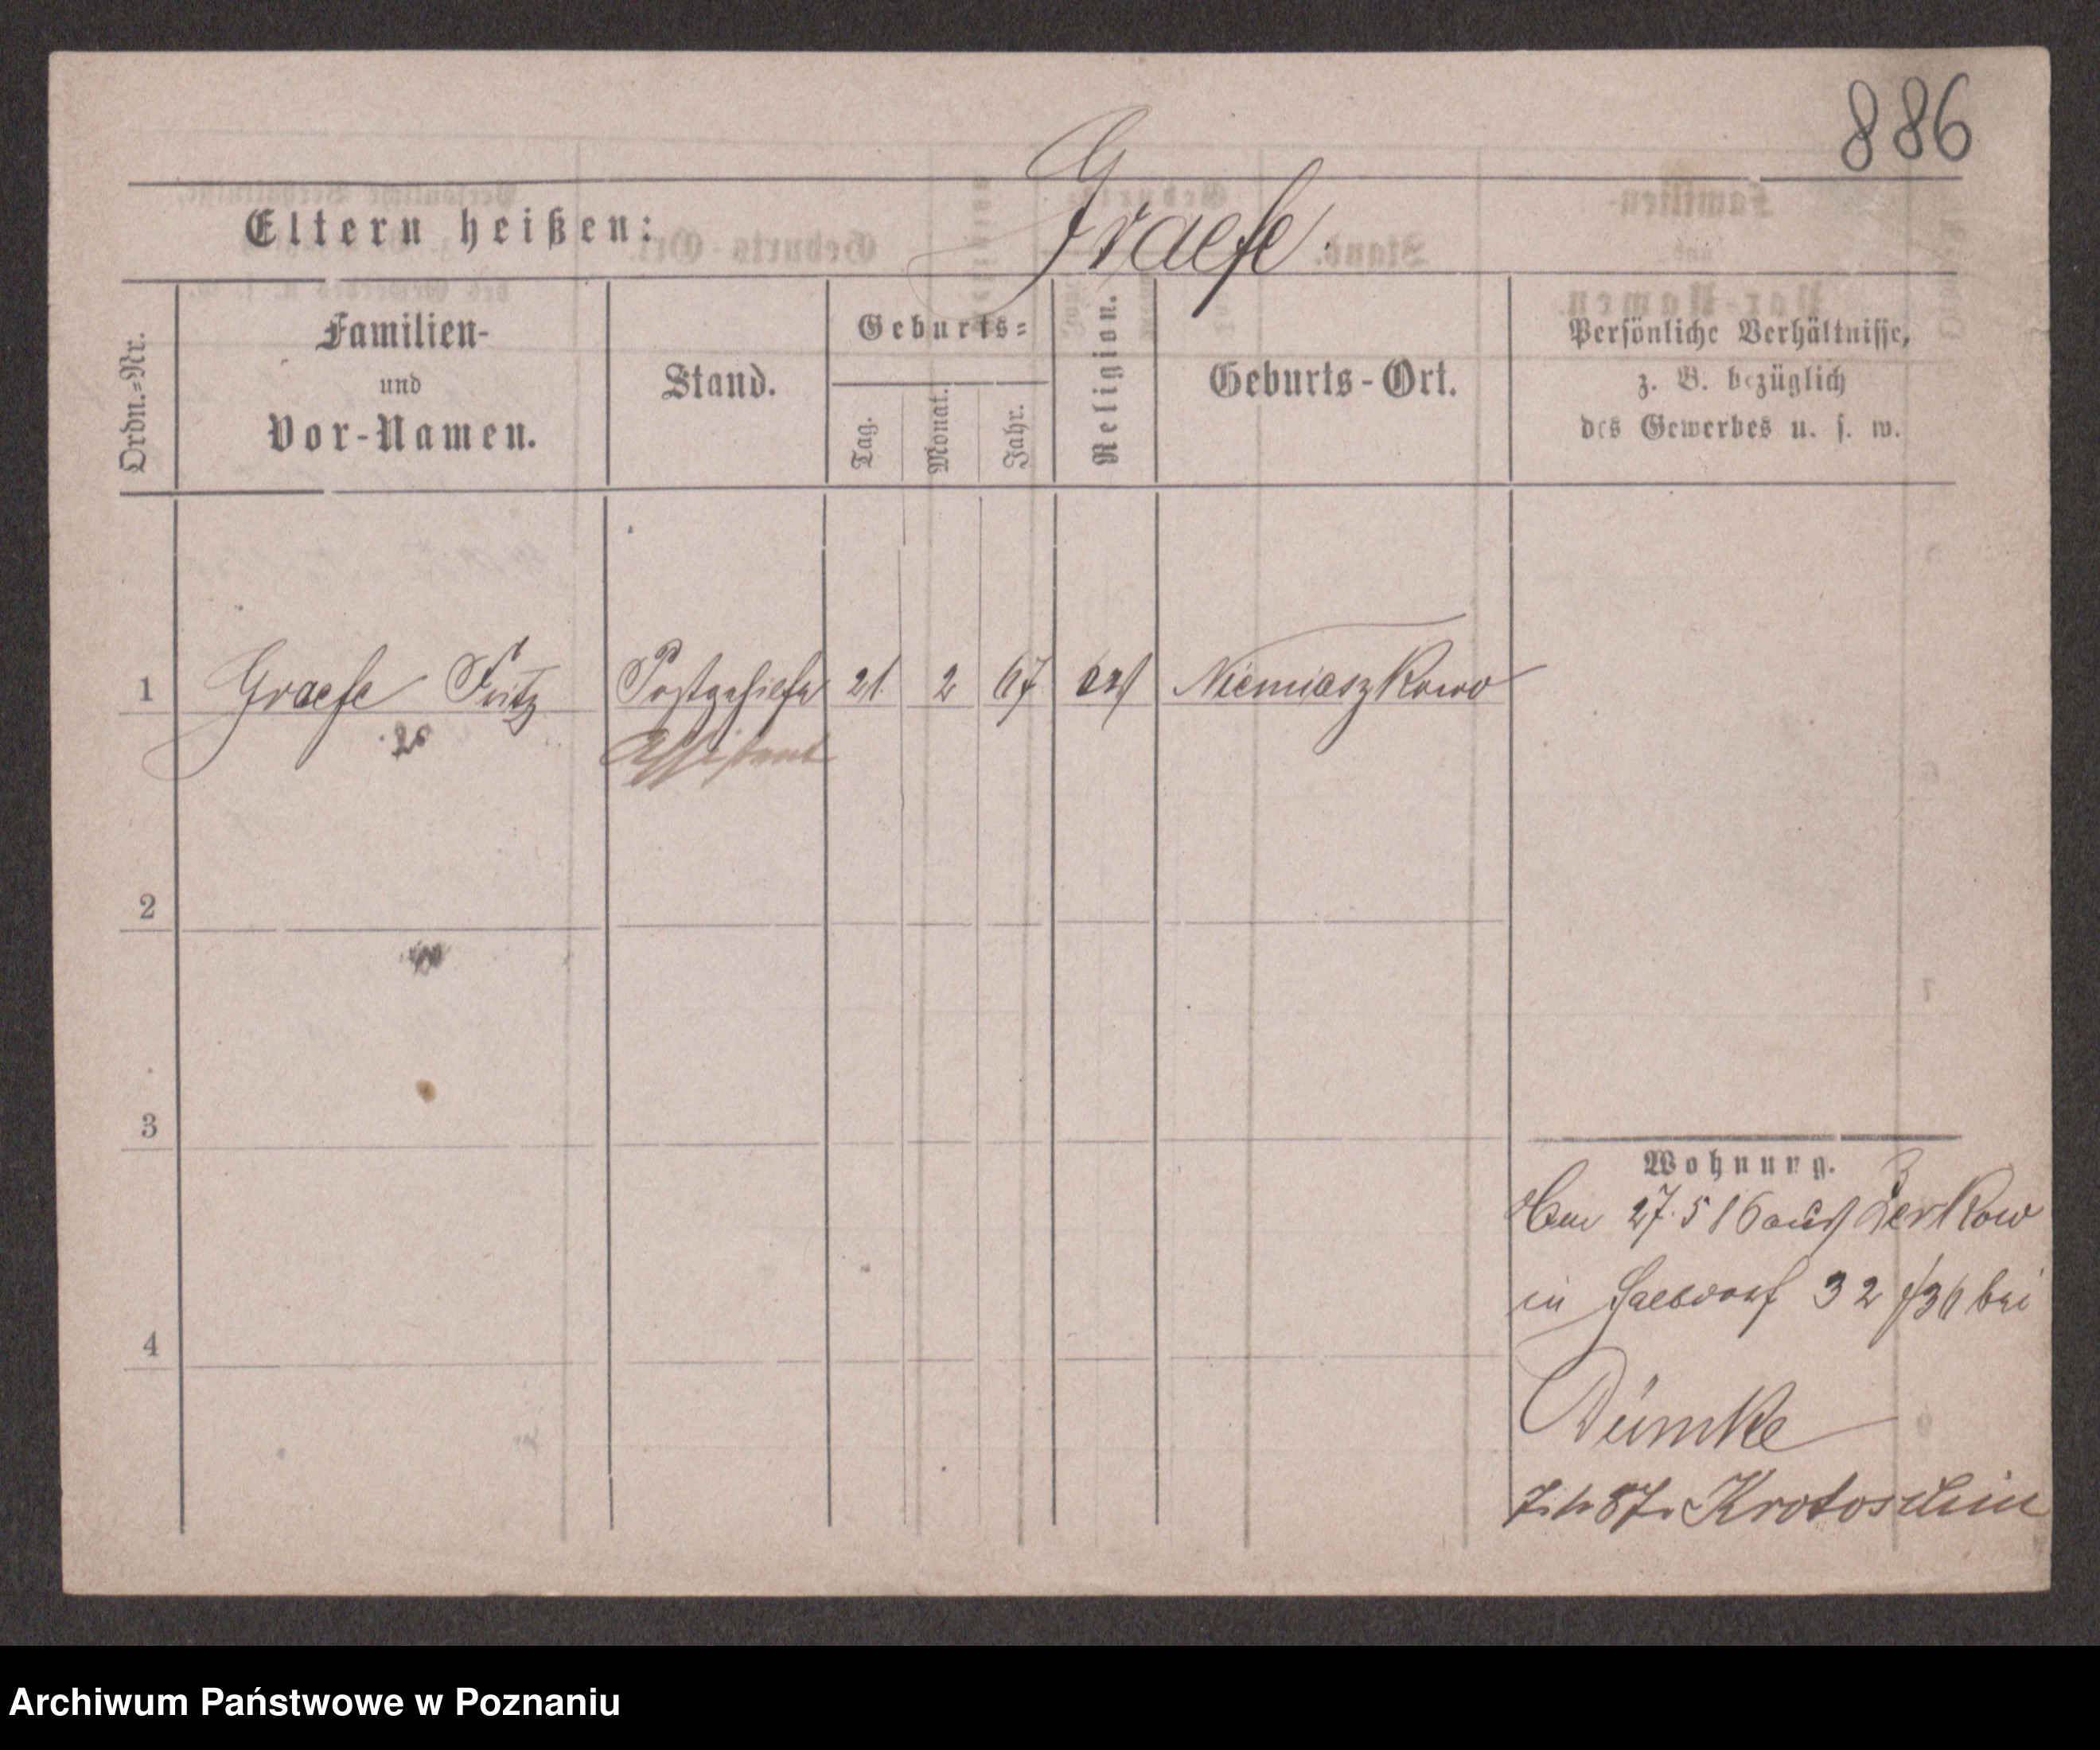 886
Eltern heißen: Graefe.
Ordn.=Nr.
Familien-
und
Vor-Namen.
Stand.
Geburts=
Tag.
Monat.
Jahr.
Religion.
Geburts-Ort.
Persönliche Verhältnisse,
z. B. bezüglich
des Gewerbes u. s. w.
1 Graefe Fritz Postgehilfe 21. 2 67 Niemiaszkowo
Assistent
2
3
4
Wohnung.
27. 5 86 aus Zerkow
in Halbdorf 32 bei
Dümke
Krotoschin
Archiwum Państwowe w Poznaniu